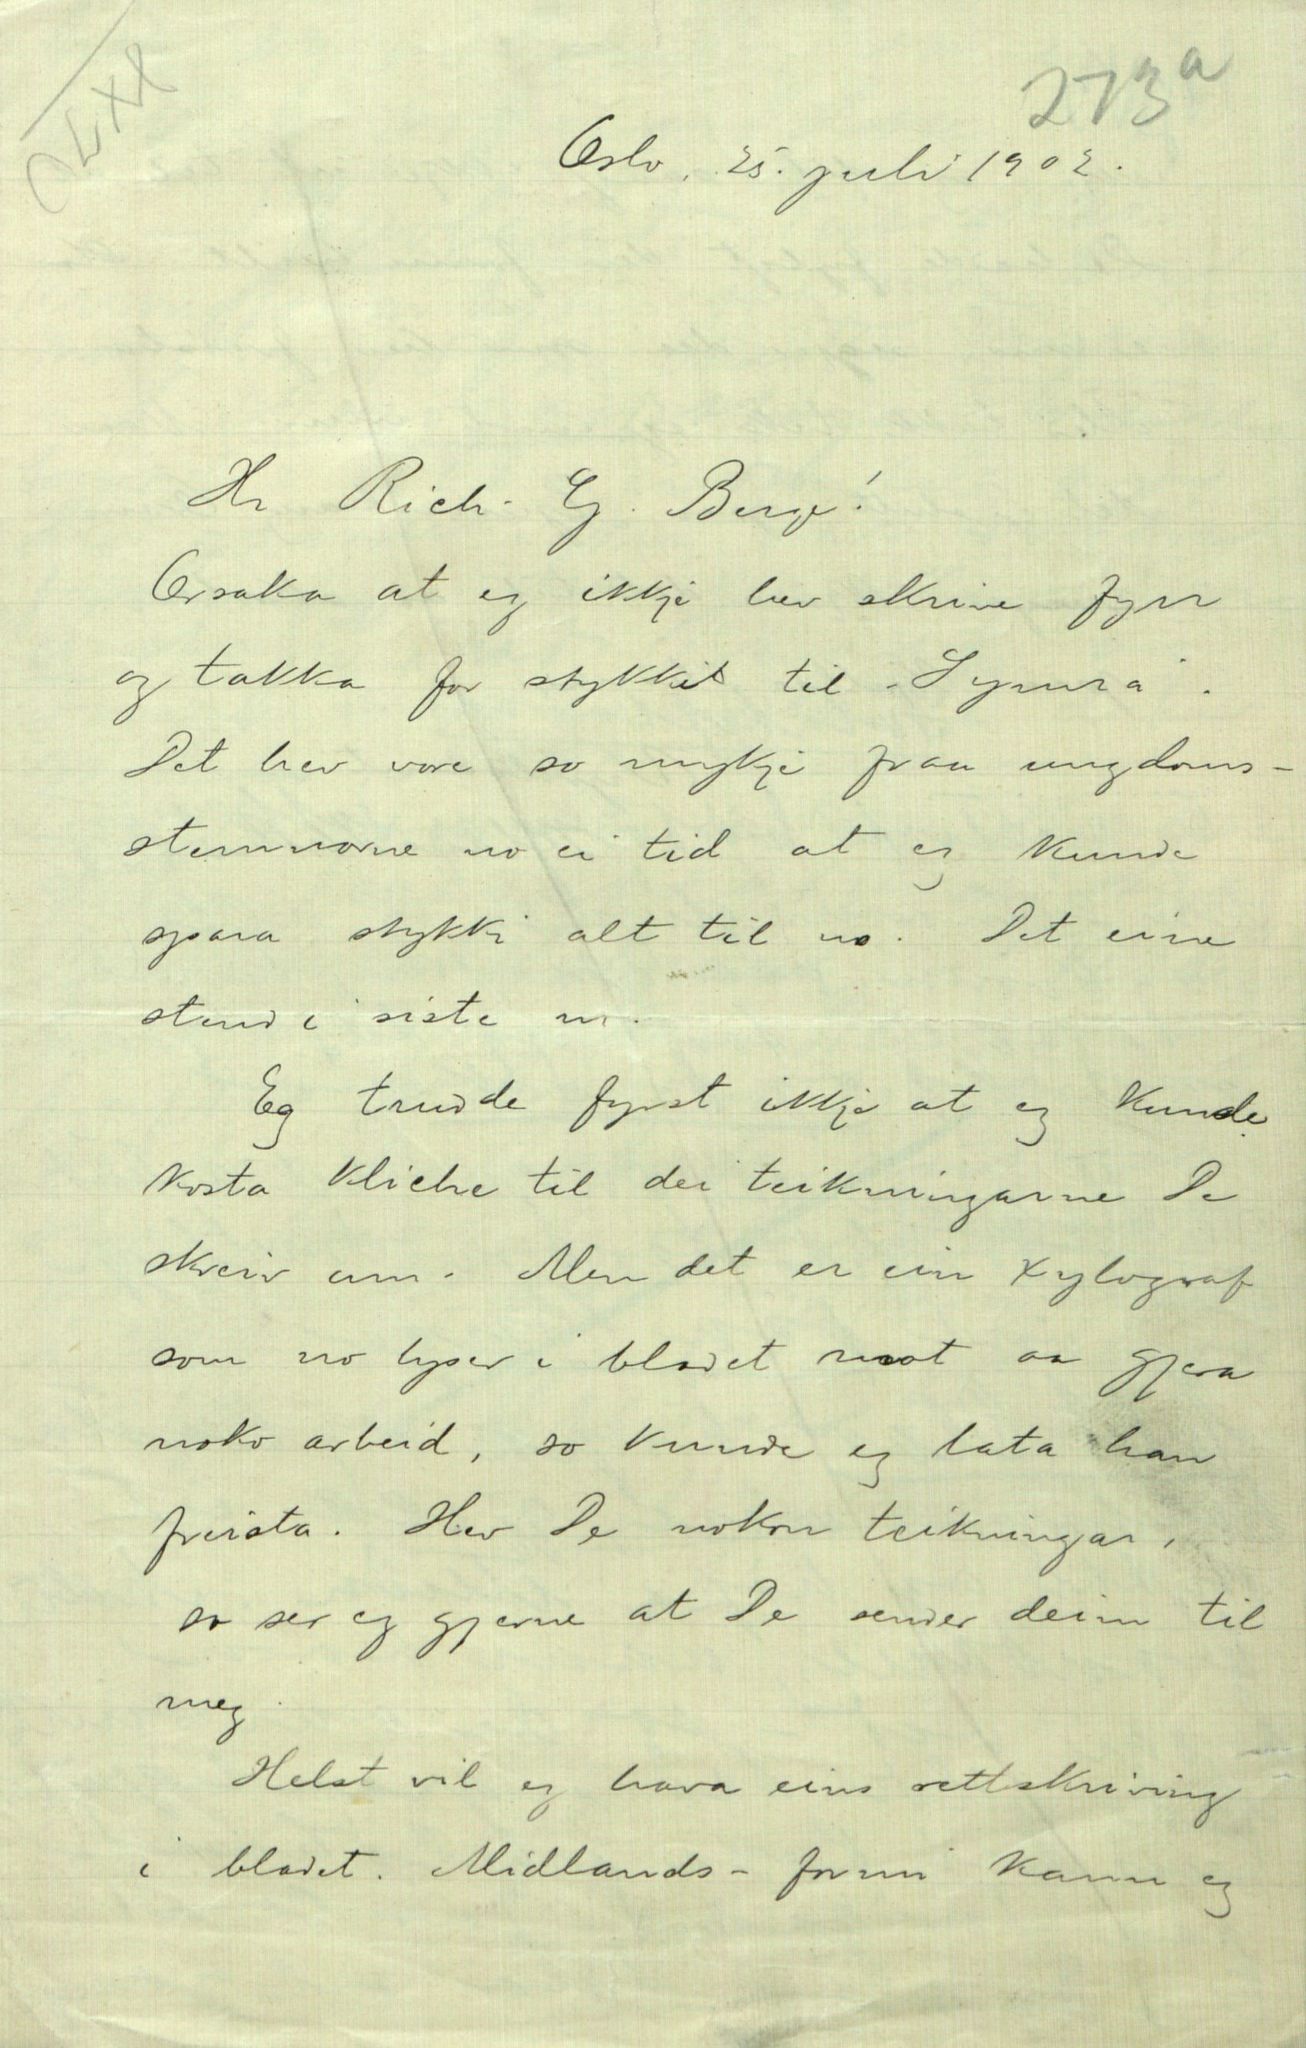 273a
Oslo, 25. juli 1902.
Hr Rich. G. Berge!
Orsaka at eg ikkje hev skrive fyrr
og takka for stykkit til "Symra".
Det hev vore so mykje fraa ungdoms-
stemnorne no ei tid at eg kunde
spara stykki alt til no. Det eine
stend i siste nr.
Eg trudde fyrst ikkje at eg kunde
kosta kliche til dei teikningarne De
skreiv um. Men det er ein xylograf
som no lyser i bladet mot aa gjera
noko arbeid, so kunde eg lata han
freista. Hev De nokon teikningar,
so ser eg gjerne at De sender deim til
meg.
Helst vil eg hava eins rettskriving
i bladet. Midlands-formi kann eg